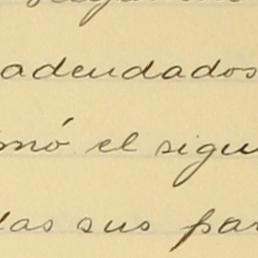 adeudados
omó el sigu
das sus par